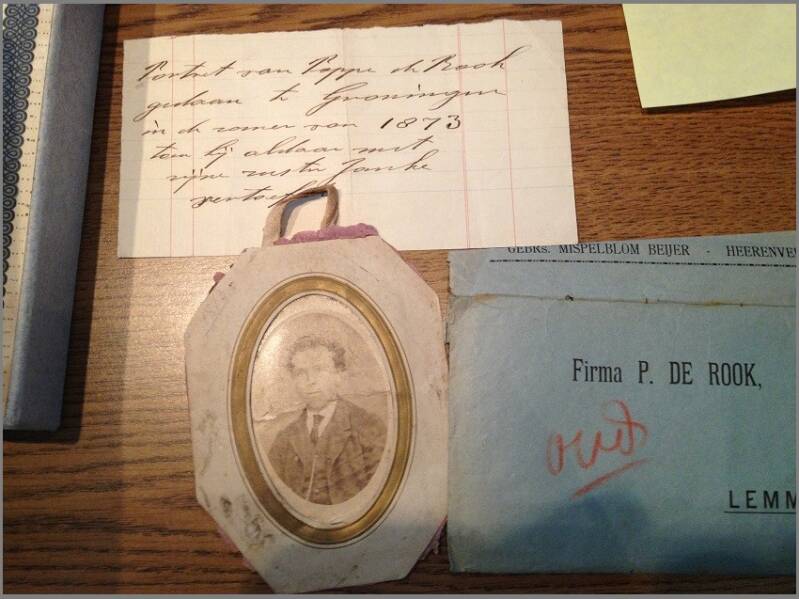 Portret van Poppe de Rook
gedaan te Groningen
in de zomer van 1873
toen hij aldaar met
zijne zuster Janke
vertoef
GEBRs. MISPELBLOM BEIJER - HEERENVE
Firma P. DE ROOK,
oud
LEMM